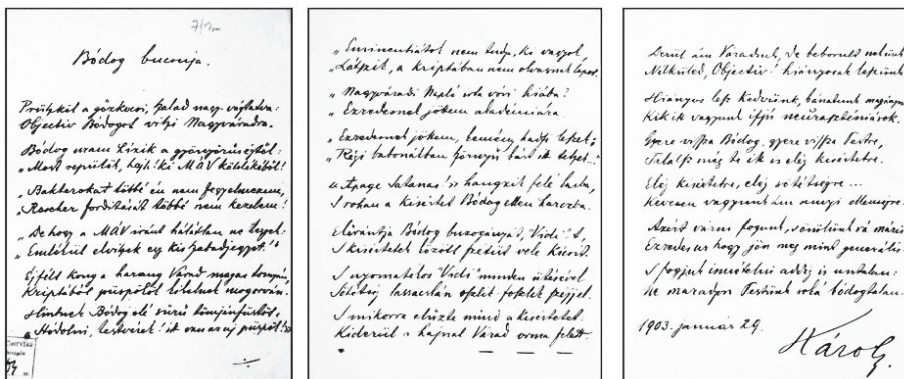 7/
Bódog bucsuja.
Prüszköl a gőzkocsi, halad nagy vágtatva:
Objectiv Bódogot viszi Nagyváradra.
Bódog uram lizik a gyönyörüségtől:
„Most repülök, hajh! ki MÁV kötelékéből!
„Bakterokat többé én nem fegyelmezem,
fordítását többé nem kezelem!
„De hogy a MÁV iránt hálátlan ne legyek:
„Emlékül elviszek egy kis szabadjegyet."
Éjfélt kong a harang Várad magas tornyán,
Kriptából püspökök lihelnek mogorván.
Hintnek Bódog elé sürü tömjénfüstöt:
„Hódolni, testvérek! itt van az új püspök!"
„Eminenciátok nem tudja, ki vagyok,
„Látszik, a kriptában nem olvasnak lapot.
„Nagyváradi Napló írta vón hiába?
„Ezredesnek jöttem akadémiára.
„Ezredesnek jöttem, kemény, hadfi leszek;
„Régi babonákban
„Apage Satanas!" hangzik felé
S rohan a kisértet Bódog ellen harczba.
Elérántja Bódog buzogányát,
S kisértetek között
S nyomatékos minden ütésével
Sötétség lassacskán oszlik foszlik széjjel.
S mikorra elüzte mind a kisértetet,
Kiderül a hajnal Várad orma felett.
Derül ám Váradnak, de beborult nekünk
Nélküled, Objectiv! hiányosak leszünk
Hiányos lesz kedvünk, bánatunk magányos
Kik itt vagyunk ifjú neuraszténiások.
Gyere vissza Bódog, gyere vissza Pestre,
Találsz még te itt is elég kisértetre.
Elég kisértetre, elég sötétségre...
Kevesen vagyunk ám annyi ellenségre.
Azért várni fogunk, s örülünk rá máris
Ezredes ur hogy jön meg mint generális.
S fogjuk ismételni addig is untalan:
Ne maradjon Pestünk soká bódogtalan.
1903. január 29.
Károly